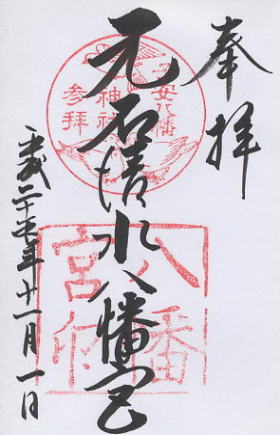 奉拝
元石清水八幡宮
平成二十五年十一月一日
安八幡
神社
参拝
八幡
宮